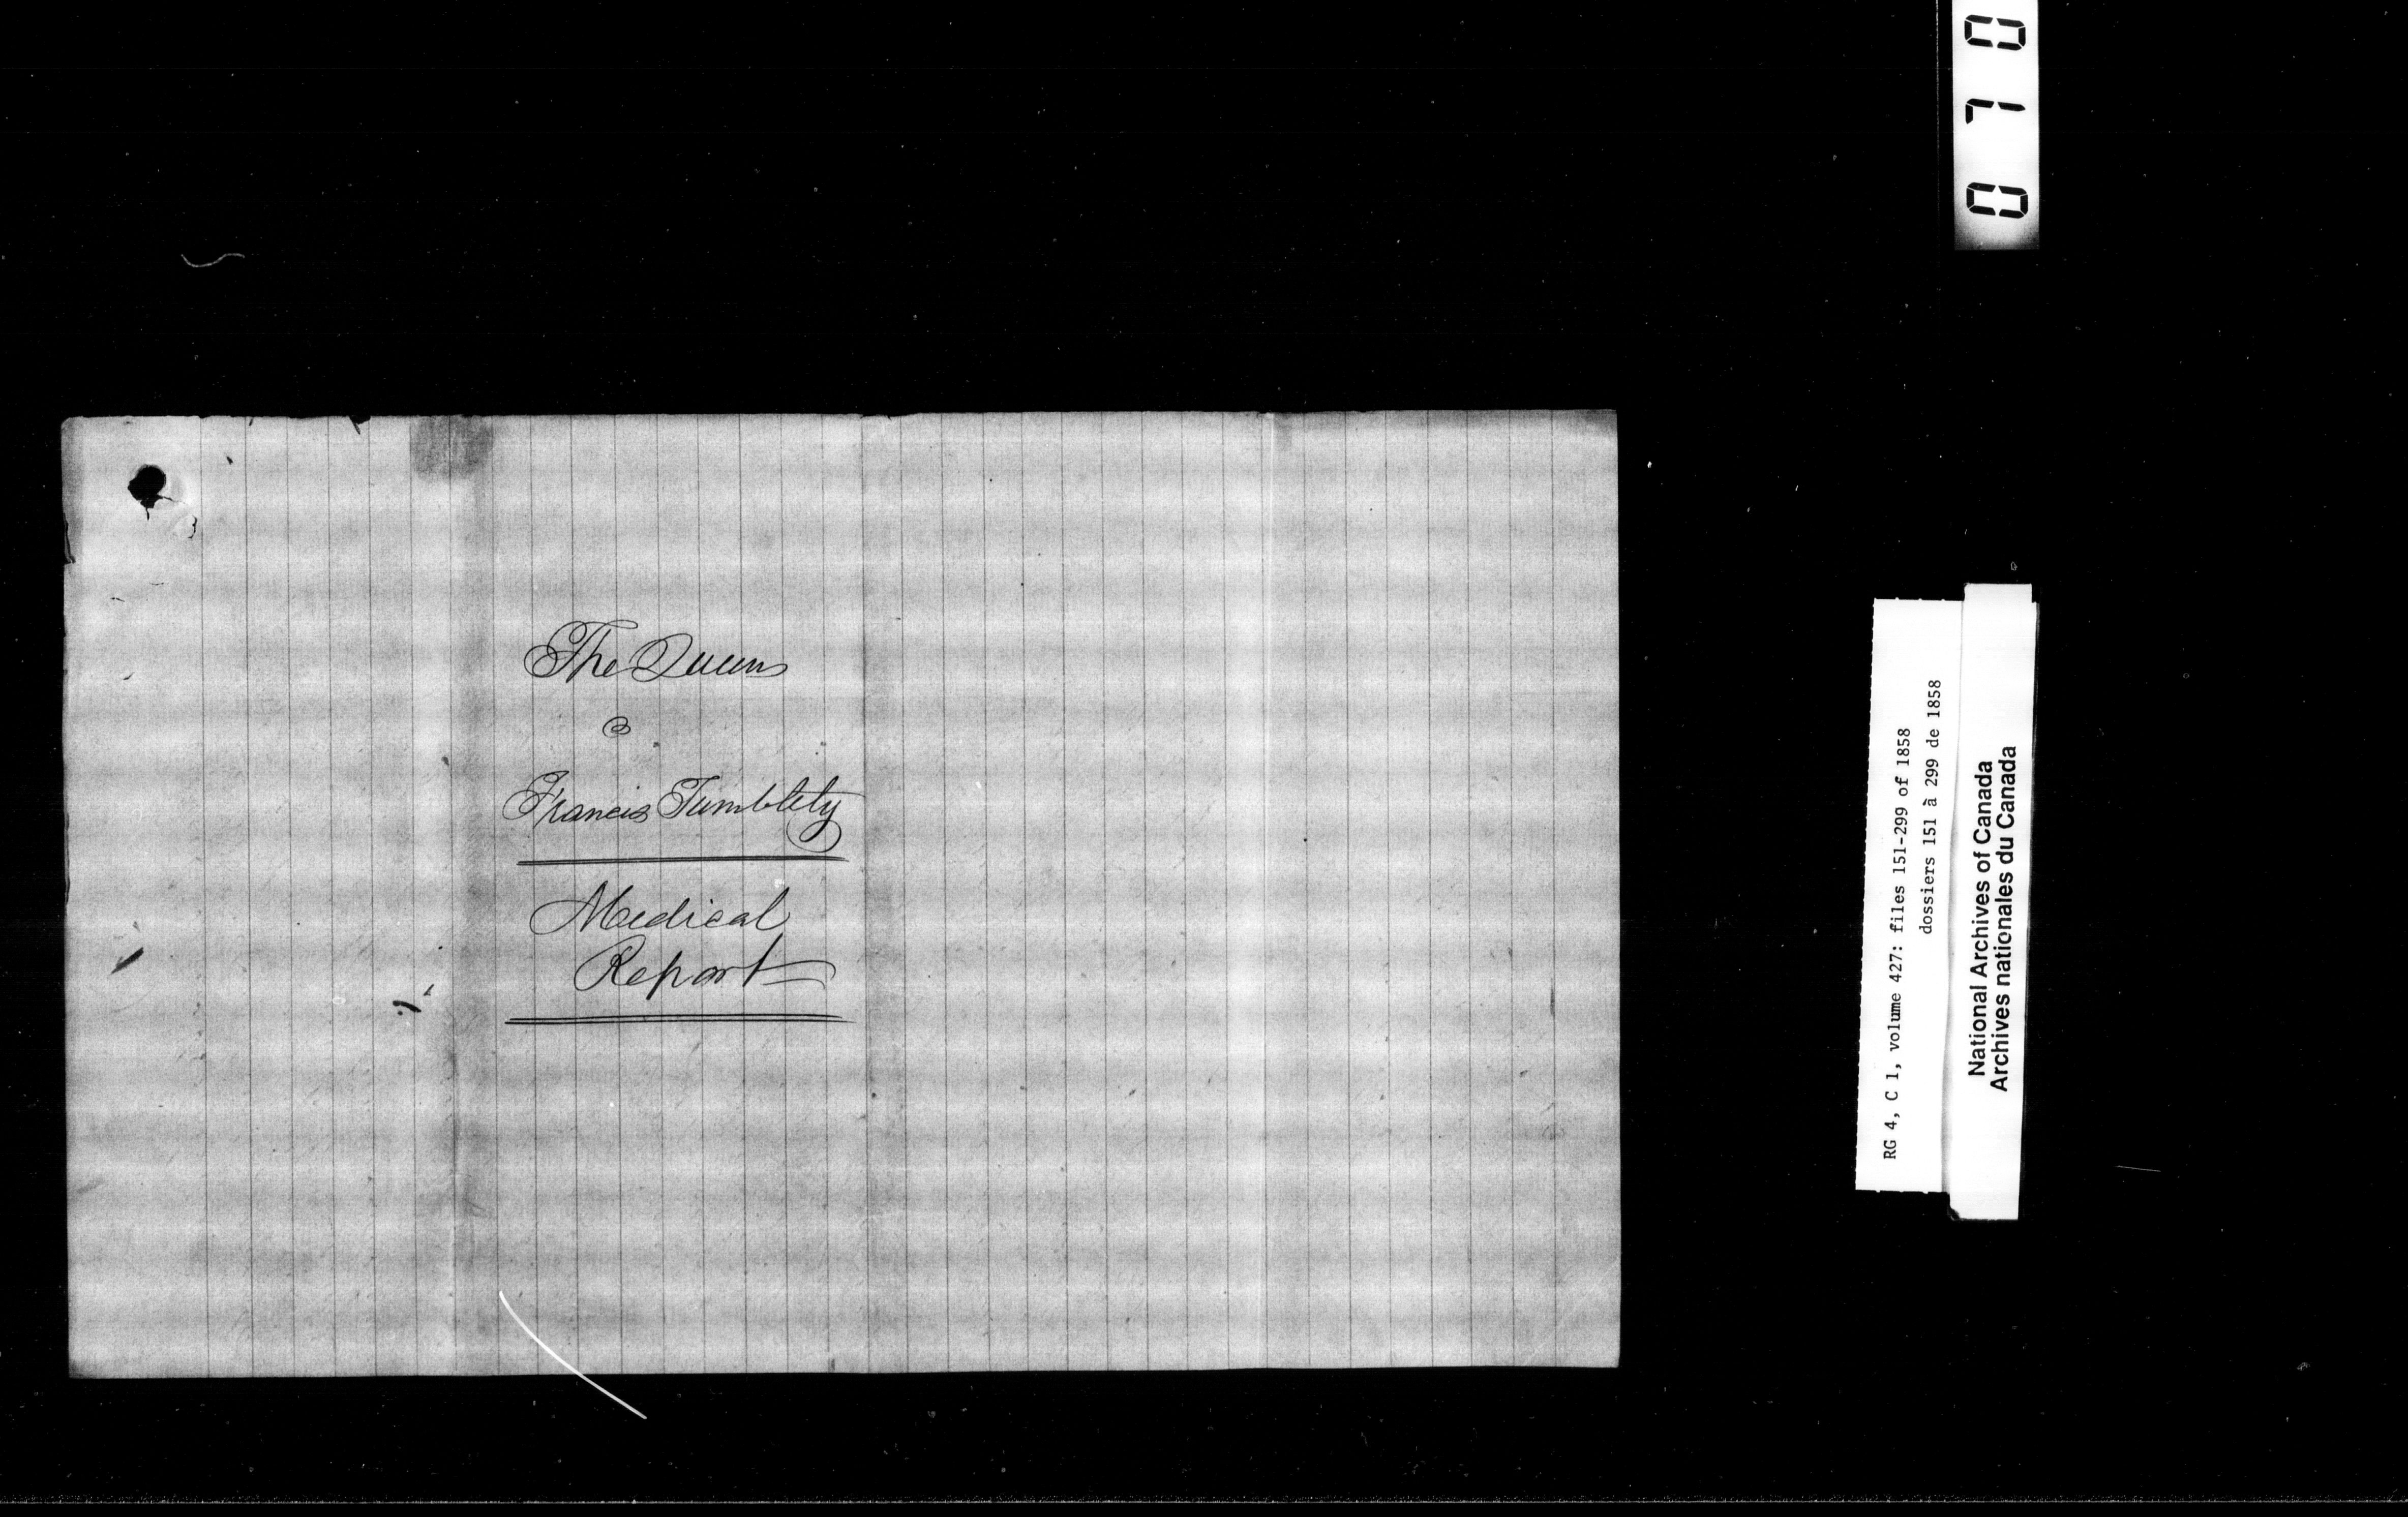 The Queen
Francis Tumblety
Medical
Report
0 7 0
RG 4, C 1, volume 427: files 151-299 of 1858
dossiers 151 à 299 de 1858
National Archives of Canada
Archives nationales du Canada